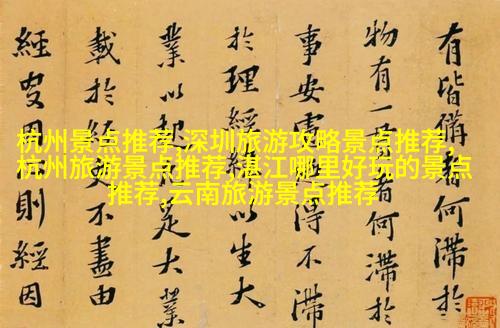 杭州景点推荐,深圳旅游攻略景点推荐,
杭州旅游景点推荐,湛江哪里好玩的景点
推荐,云南旅游景点推荐
有皆備者何滞於
物有一者何滞於
事安得不滞
於理經以生大
業以起是大業
載於不盡由
經則經因